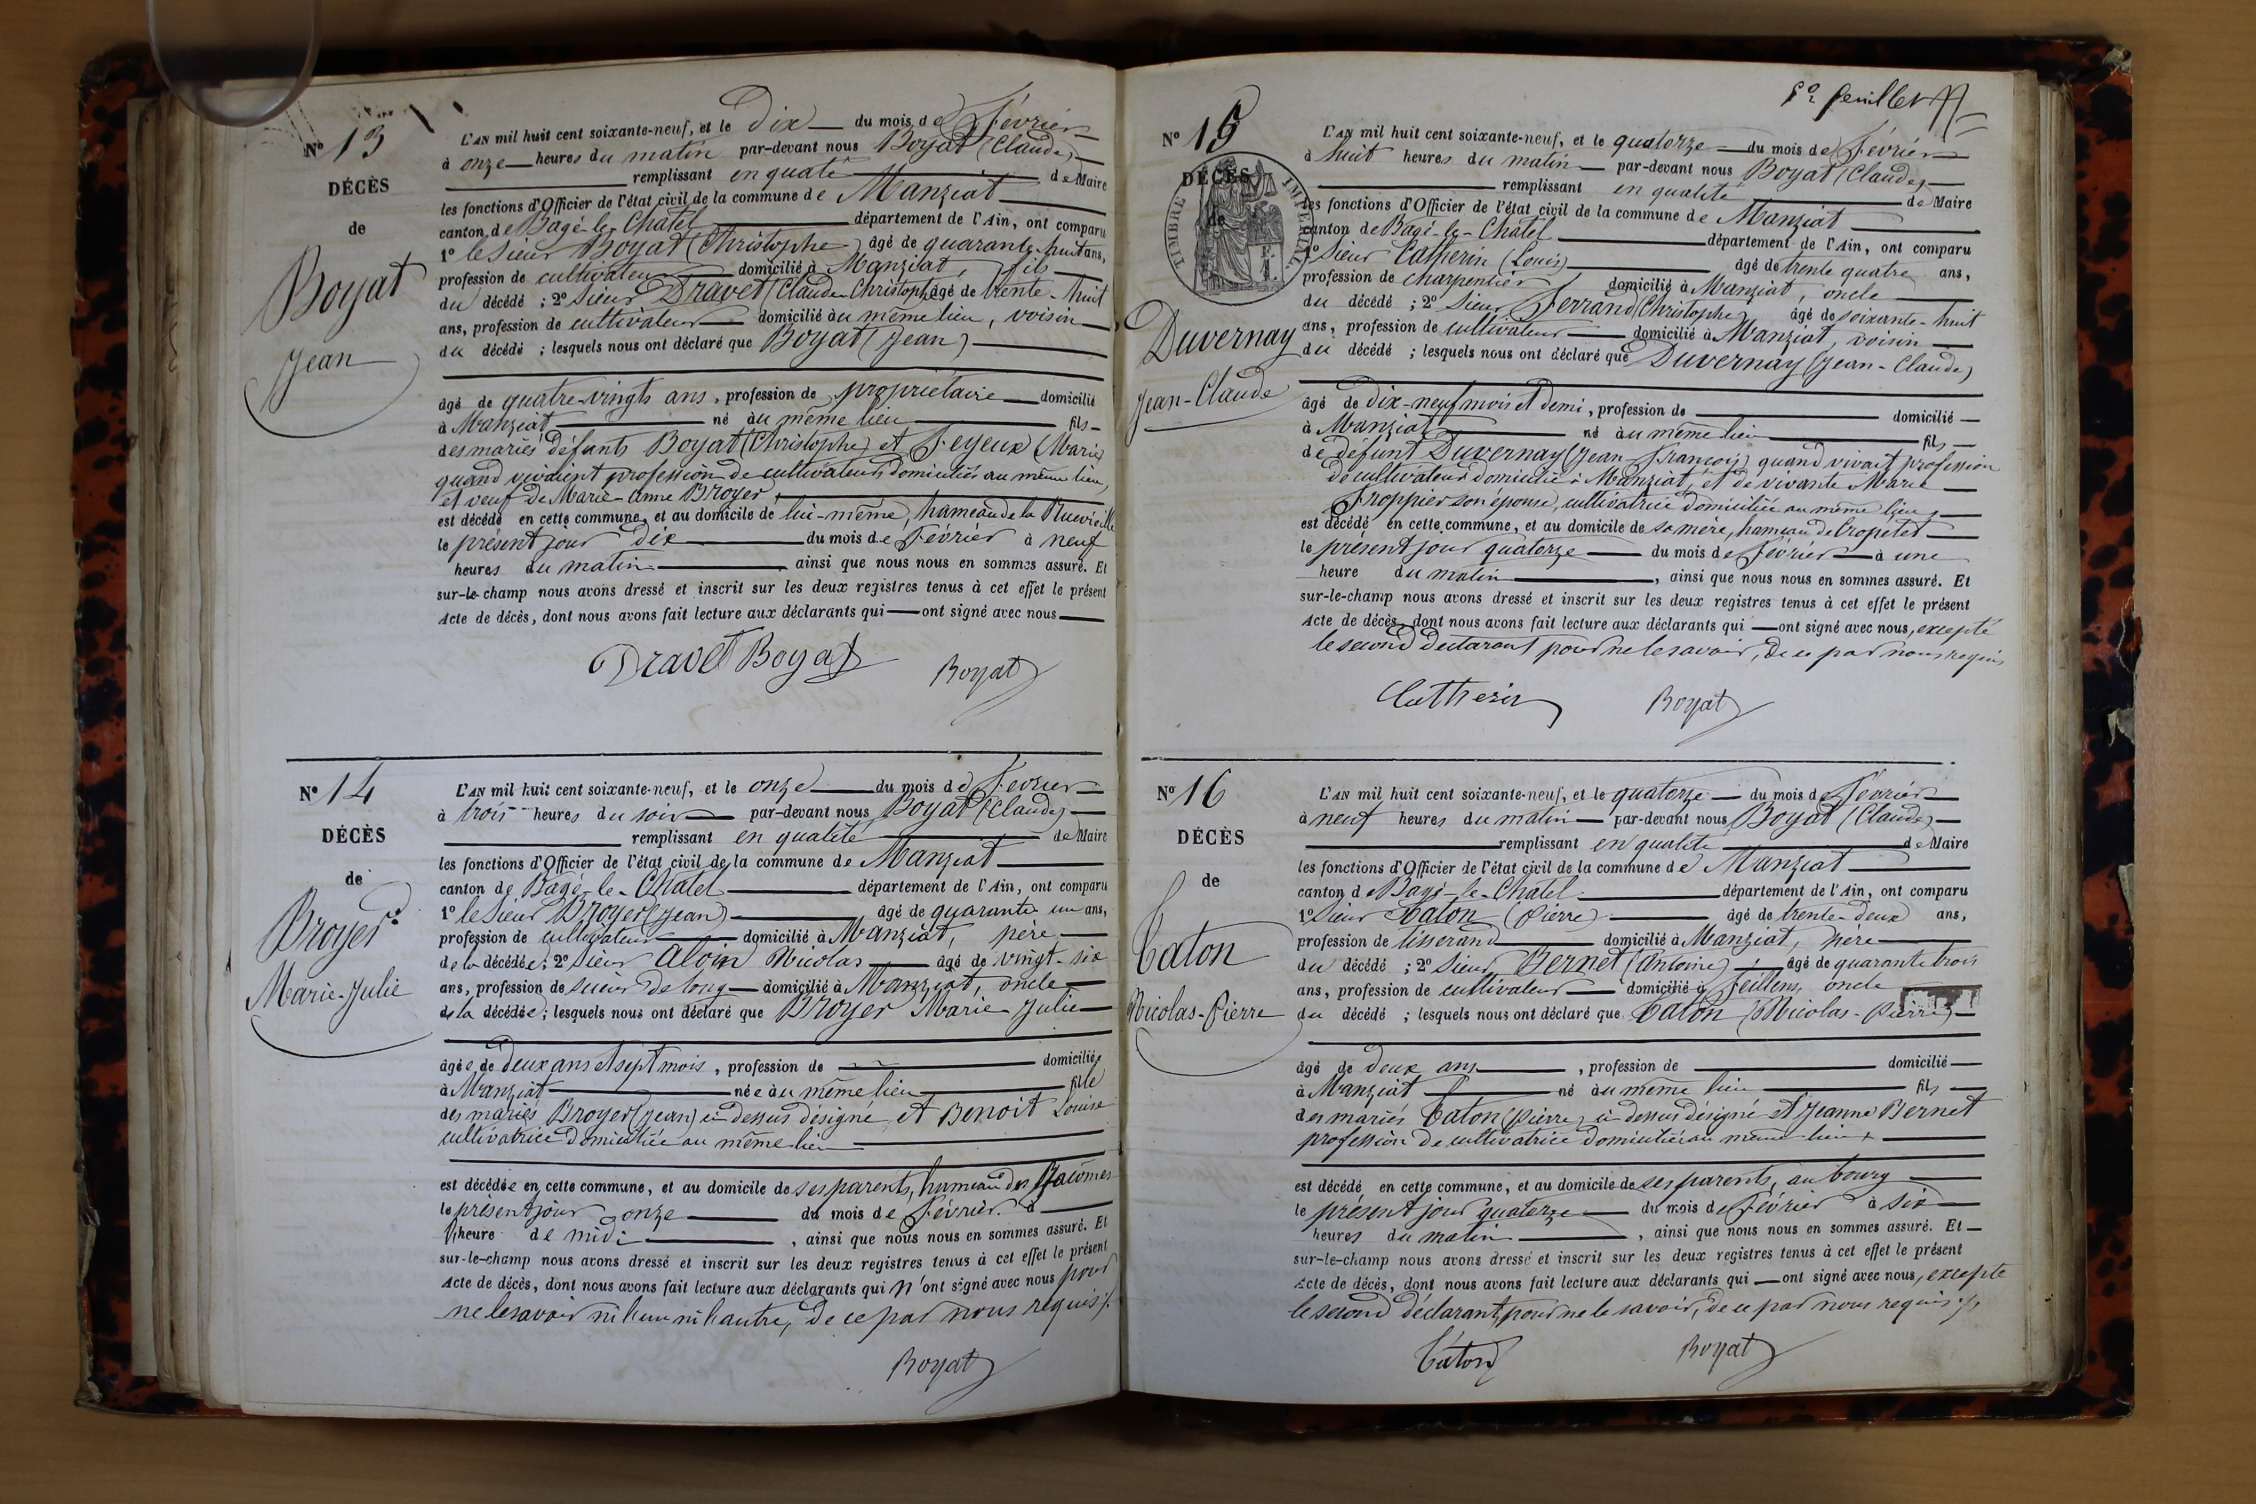 Nº 13
DÉCÈS
de
Boyat
Jean
L'AN mil huit cent soixante-neuf, et le dix du mois de Février
à onze heures du matin par-devant nous Boyat (Claude)
remplissant en qualité de Maire
les fonctions d'Officier de l'état civil de la commune de Manziat
canton de Bagé-le-Chatel département de l'Ain, ont comparu
1º le Sieur Boyat (Christophe) âgé de quarante-huit ans,
profession de cultivateur domicilié à Manziat, fils
du décédé ; 2º Sieur Dravet (Claude-Christophe) âgé de trente-huit
ans, profession de cultivateur domicilié au même lieu, voisin
du décédé ; lesquels nous ont déclaré que Boyat (Jean)
âgé de quatre-vingts ans, profession de propriétaire domicilié
à Manziat né au même lieu fils
des mariés défunts Boyat (Christophe) et Feyeux (Marie)
quand vivaient profession de cultivateurs domiciliés au même lieu,
et veuf de Marie-Anne Broyer,
est décédé en cette commune, et au domicile de lui-même, hameau de la
le présent jour dix du mois de Février à neuf
heures du matin ainsi que nous nous en sommes assuré. Et
sur-le-champ nous avons dressé et inscrit sur les deux registres tenus à cet effet le présent
Acte de décès, dont nous avons fait lecture aux déclarants qui ont signé avec nous
Dravet Boyat Boyat
Nº 14
DÉCÈS
de
Broyer
Marie-Julie
L'AN mil huit cent soixante-neuf, et le onze du mois de Février
à trois heures du soir par-devant nous Boyat (Claude)
remplissant en qualité de Maire
les fonctions d'Officier de l'état civil de la commune de Manziat
canton de Bagé-le-Chatel département de l'Ain, ont comparu
1º le Sieur Broyer (Jean) âgé de quarante un ans,
profession de cultivateur domicilié à Manziat, père
de la décédée ; 2º Sieur Aloin Nicolas âgé de vingt-six
ans, profession de scieur de long domicilié à Manziat, oncle
de la décédée ; lesquels nous ont déclaré que Broyer Marie-Julie
âgée de deux ans et sept mois, profession de domiciliée
à Manziat née au même lieu fille
des mariés Broyer (Jean) ci-dessus désigné et Benoit Louise
cultivatrice domiciliée au même lieu
est décédée en cette commune, et au domicile de ses parents, hameau des
le présent jour onze du mois de Février à
heure de midi, ainsi que nous nous en sommes assuré. Et
sur-le-champ nous avons dressé et inscrit sur les deux registres tenus à cet effet le présent
Acte de décès, dont nous avons fait lecture aux déclarants qui n'ont signé avec nous pour
ne le savoir ni l'un ni l'autre, de ce par nous requis
Boyat
feuillet
Nº 15
DÉCÈS
de
TIMBRE IMPÉRIAL
Duvernay
Jean-Claude
L'AN mil huit cent soixante-neuf, et le quatorze du mois de Février
à huit heures du matin par-devant nous Boyat (Claude)
remplissant en qualité de Maire
les fonctions d'Officier de l'état civil de la commune de Manziat
canton de Bagé-le-Chatel département de l'Ain, ont comparu
1º Sieur Catherin (Louis) âgé de trente quatre ans,
profession de charpentier domicilié à Manziat, oncle
du décédé ; 2º Sieur Ferrand (Christophe) âgé de soixante-huit
ans, profession de cultivateur domicilié à Manziat, voisin
du décédé ; lesquels nous ont déclaré que Duvernay (Jean-Claude)
âgé de dix-neuf mois et demi, profession de domicilié
à Manziat né au même lieu fils
de défunt Duvernay (Jean-François) quand vivait profession
de cultivateur domicilié à Manziat, et de vivante Marie
son épouse, cultivatrice domiciliée au même lieu,
est décédé en cette commune, et au domicile de sa mère, hameau de Cropetet
le présent jour quatorze du mois de Février à une
heure du matin, ainsi que nous nous en sommes assuré. Et
sur-le-champ nous avons dressé et inscrit sur les deux registres tenus à cet effet le présent
Acte de décès, dont nous avons fait lecture aux déclarants qui ont signé avec nous, excepté
le second déclarant pour ne le savoir, de ce par nous requis
Catherin Boyat
Nº 16
DÉCÈS
de
Caton
Nicolas-Pierre
L'AN mil huit cent soixante-neuf, et le quatorze du mois de Février
à neuf heures du matin par-devant nous Boyat (Claude)
remplissant en qualité de Maire
les fonctions d'Officier de l'état civil de la commune de Manziat
canton de Bagé-le-Chatel département de l'Ain, ont comparu
1º Sieur Caton (Pierre) âgé de trente-deux ans,
profession de tisserand domicilié à Manziat, père
du décédé ; 2º Sieur Bernet (Antoine) âgé de quarante trois
ans, profession de cultivateur domicilié à Feillens, oncle
du décédé ; lesquels nous ont déclaré que Caton (Nicolas-Pierre)
âgé de deux ans, profession de domicilié
à Manziat né au même lieu fils
des mariés Caton (Pierre) ci-dessus désigné et Jeanne Bernet
profession de cultivatrice domiciliée au même lieu
est décédé en cette commune, et au domicile de ses parents, au bourg
le présent jour quatorze du mois de Février à six
heures du matin, ainsi que nous nous en sommes assuré. Et
sur-le-champ nous avons dressé et inscrit sur les deux registres tenus à cet effet le présent
Acte de décès, dont nous avons fait lecture aux déclarants qui ont signé avec nous, excepté
le second déclarant, pour ne le savoir, de ce par nous requis
Caton Boyat